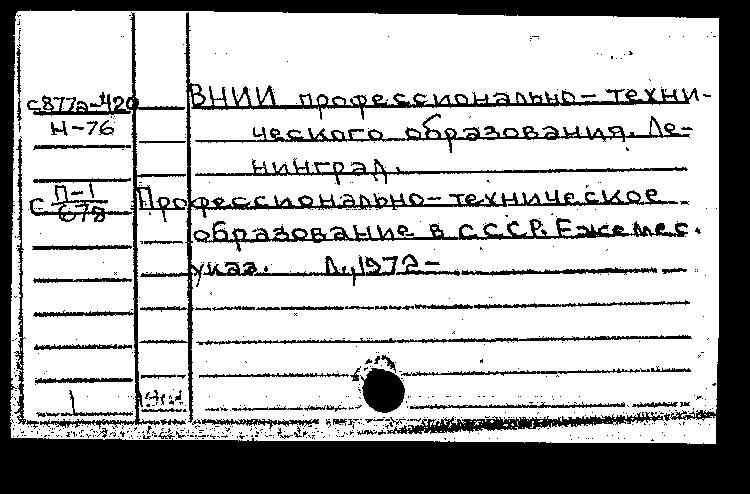 с877а-420 ВНИИ профессионально-техни-
Н-76 ческого образования. Ле-
нинград.
с П-1/678 Профессионально-техническое
образование в СССР. Ежемес.
указ. Л., 1972-
1